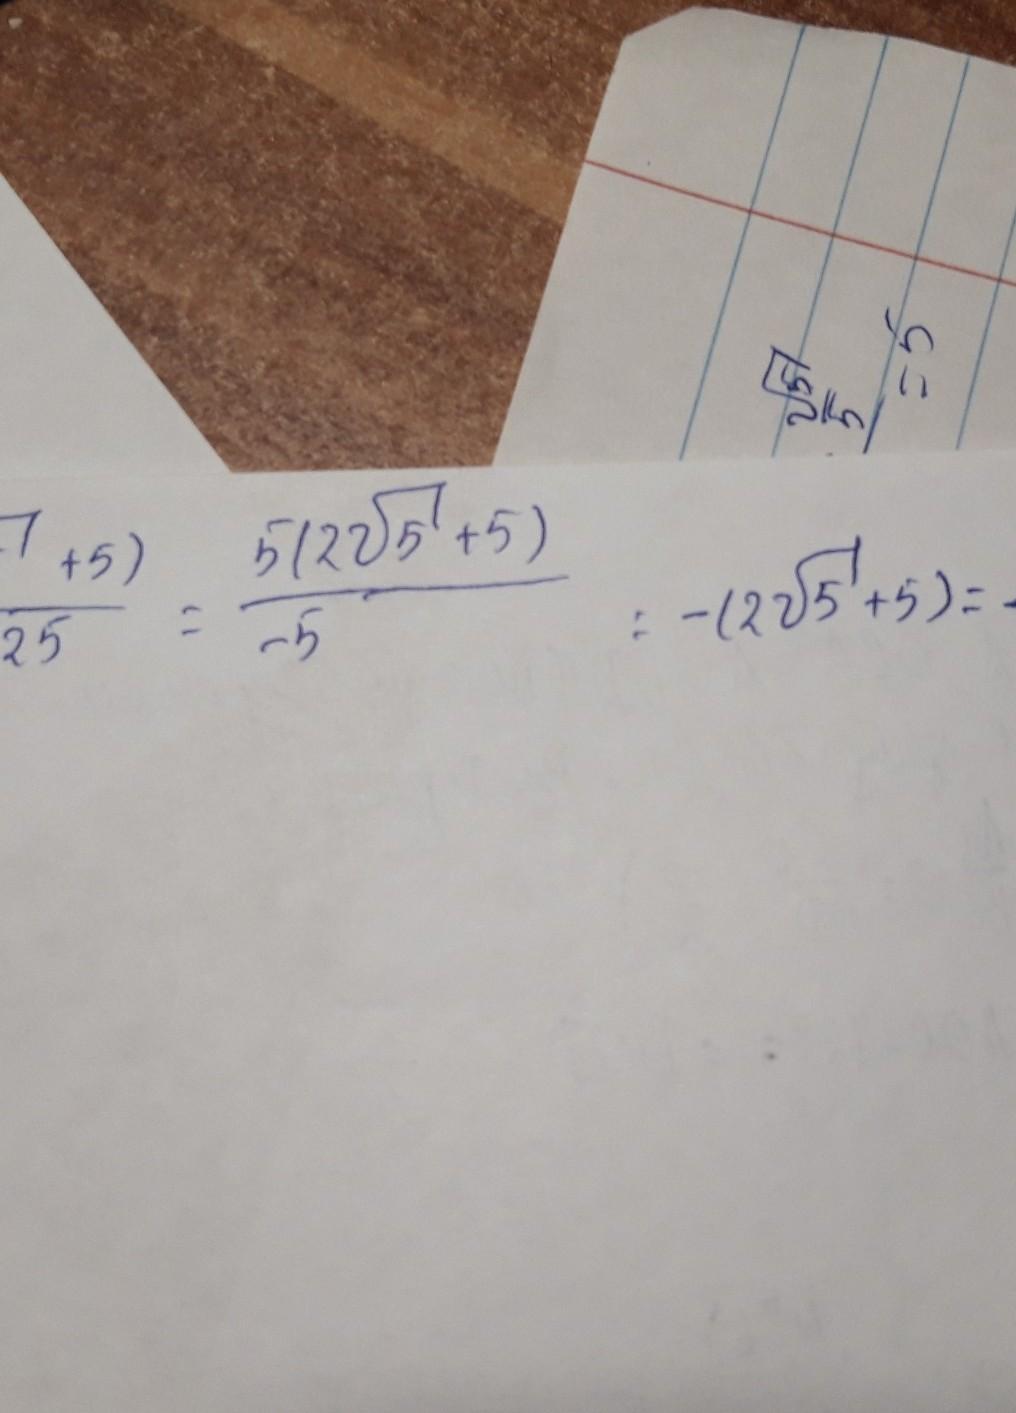 +5)/25 = 5(2√5+5)/-5 = -(2√5+5) = -
√5
= 5